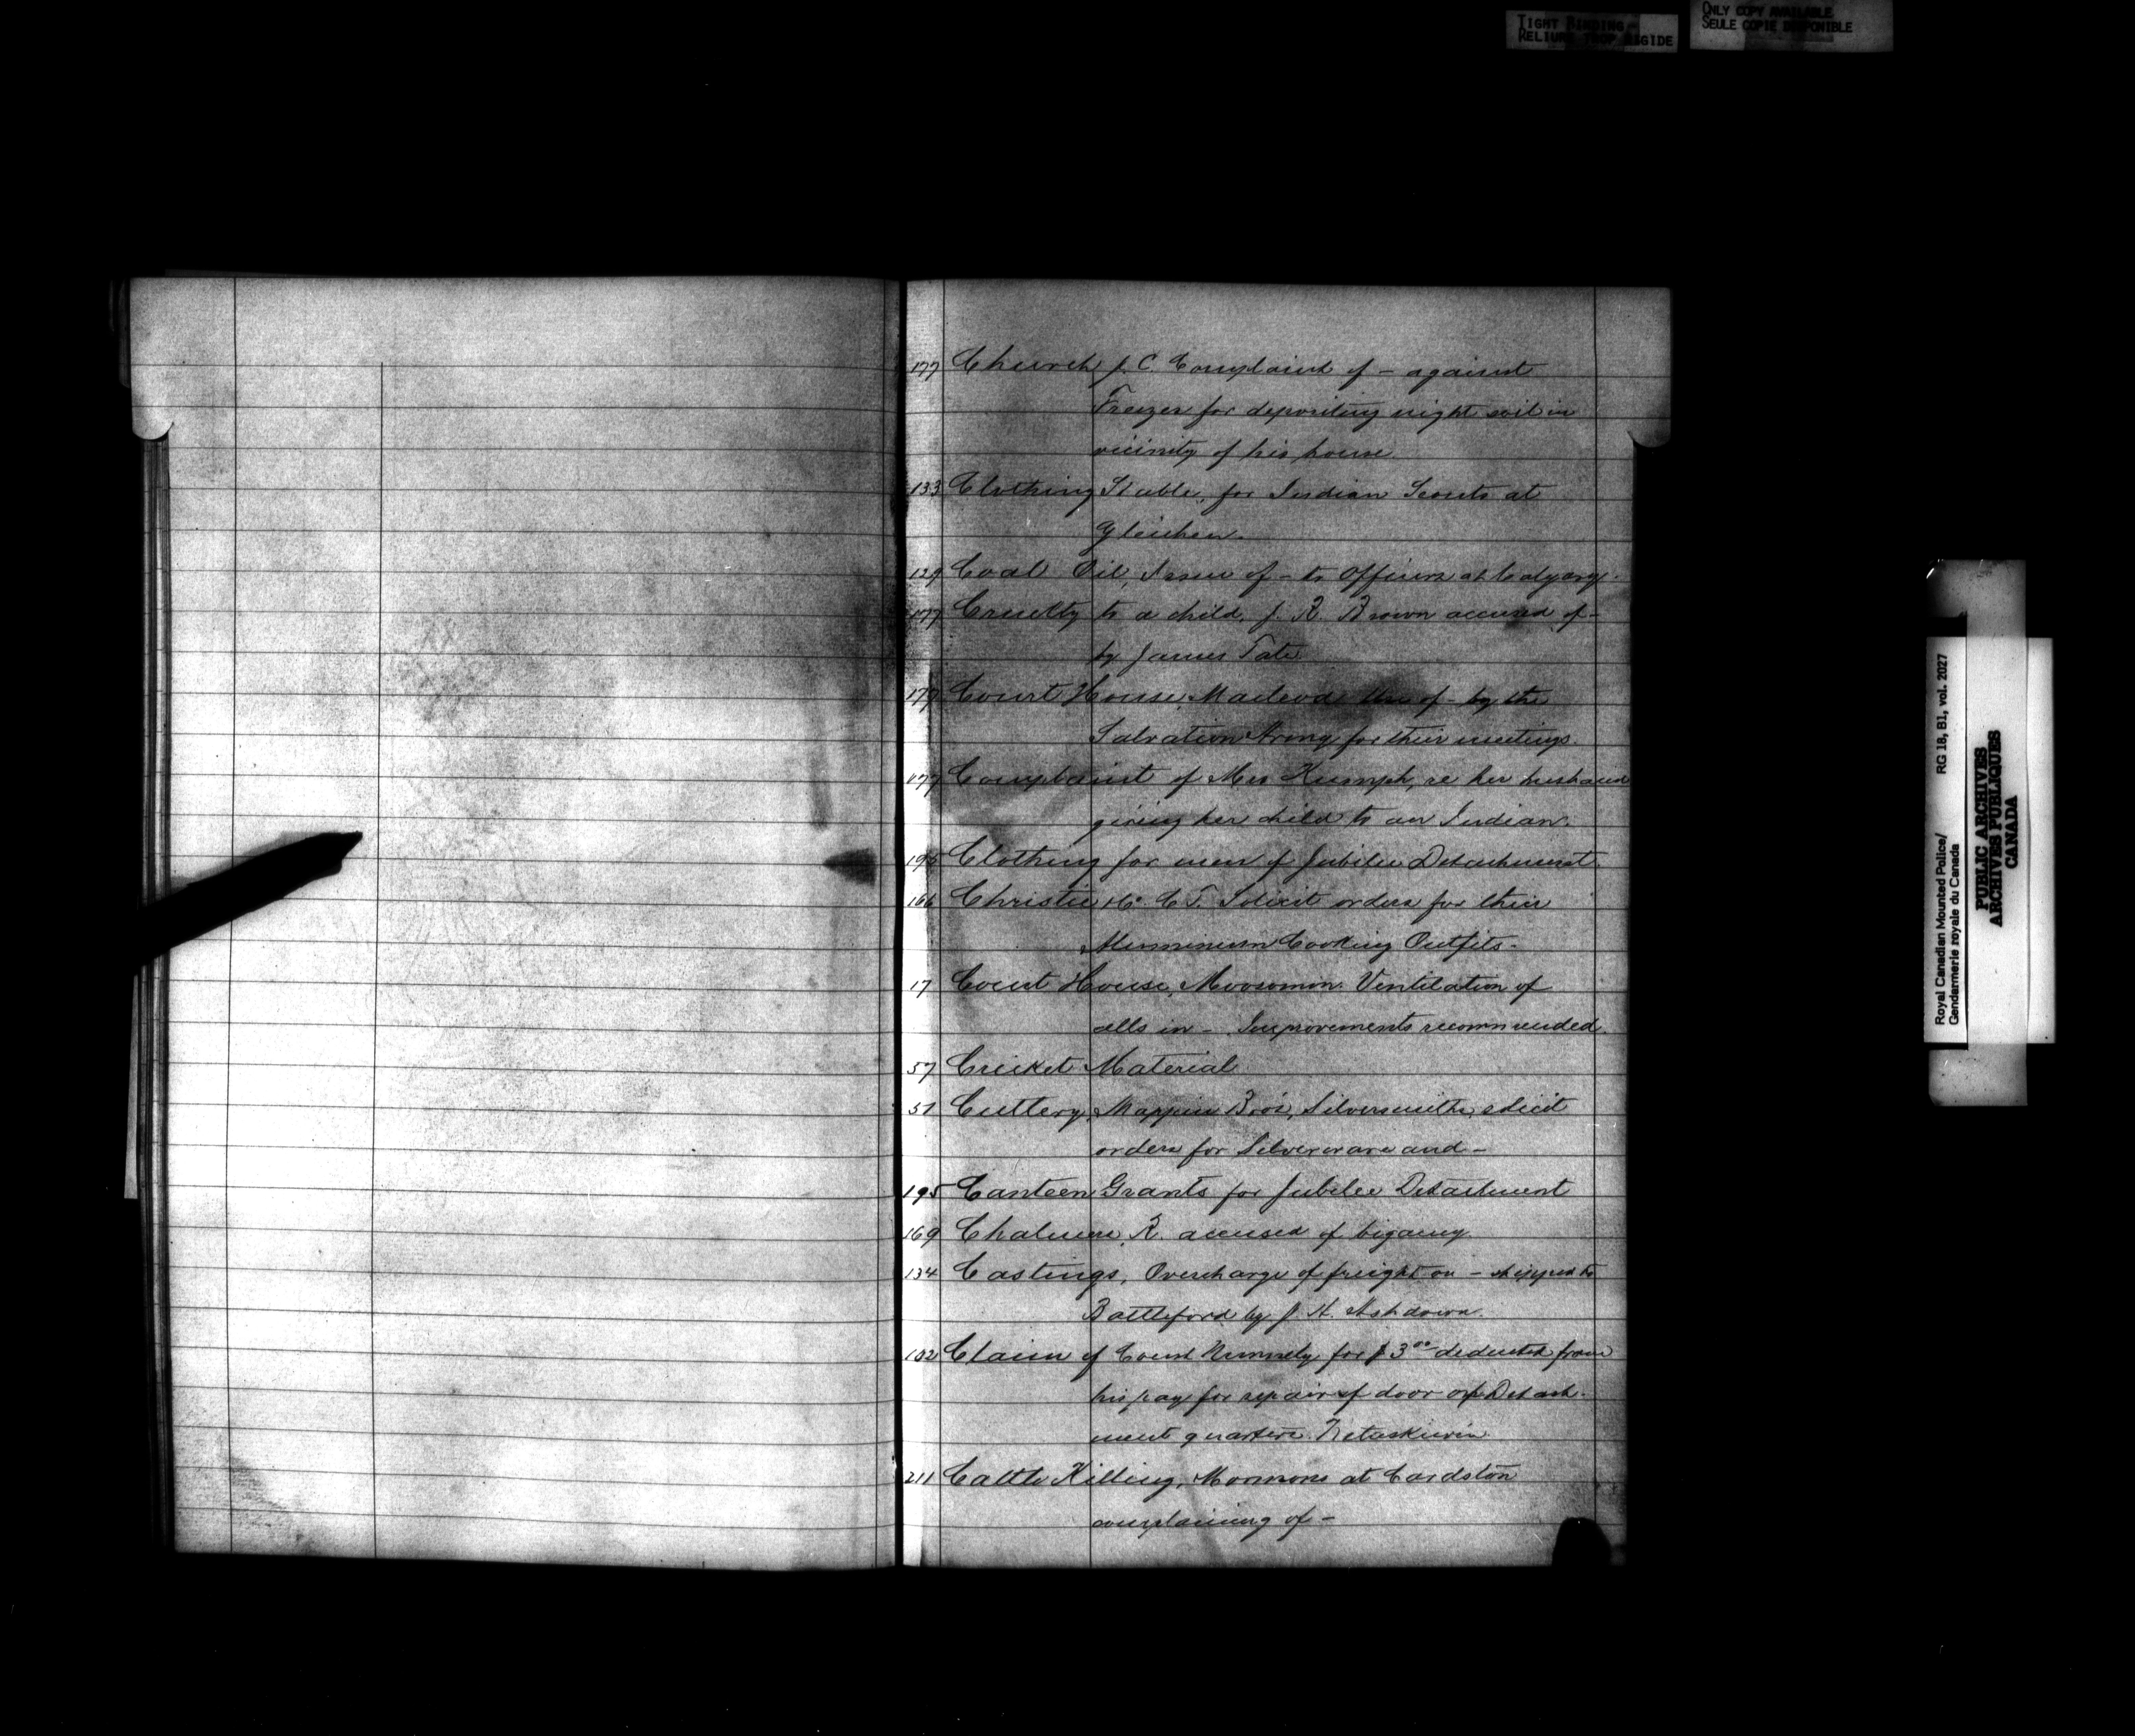 TIGHT BINDING
RELIURE TROP RIGIDE
ONLY COPY AVAILABLE
SEULE COPIE DISPONIBLE
177 Church J. C. Complaint of - against
Freezer for depositing night soil in
vicinity of his house
133 Clothing Stable, for Indian Scouts at
Gleichen.
129 Coal Oil, Issue of - to Officers at Calgary.
177 Cruelty to a child, J. R. Brown accused of -
by James Tate
177 Court House, Macleod Use of - by the
Salvation Army for their meetings.
177 Complaint of Mrs Kumph, re her husband
giving her child to an Indian.
195 Clothing for men of Jubilee Detachment.
166 Christie C. T. Solicit orders for their
Aluminium Cooking Outfits -
17 Court House, Moosomin. Ventilation of
cells in - Improvements recommended.
57 Cricket Material
51 Cutlery, Mappin Bros, Silversmiths, solicit
orders for Silverware and -
195 Canteen Grants for Jubilee Detachment
169 Chalmers R. accused of bigamy.
134 Castings, Overcharge of freight on - shipped to
Battleford by J. H. Ashdown.
102 Claim of Const Nunnely for $3.00 deducted from
his pay for repair of door of Detach-
ment quarters. Wetaskiwin
211 Cattle Killing, Mormons at Cardston
complaining of -
Royal Canadian Mounted Police/
Gendarmerie royale du Canada
RG 18, B1, vol. 2027
PUBLIC ARCHIVES
ARCHIVES PUBLIQUES
CANADA